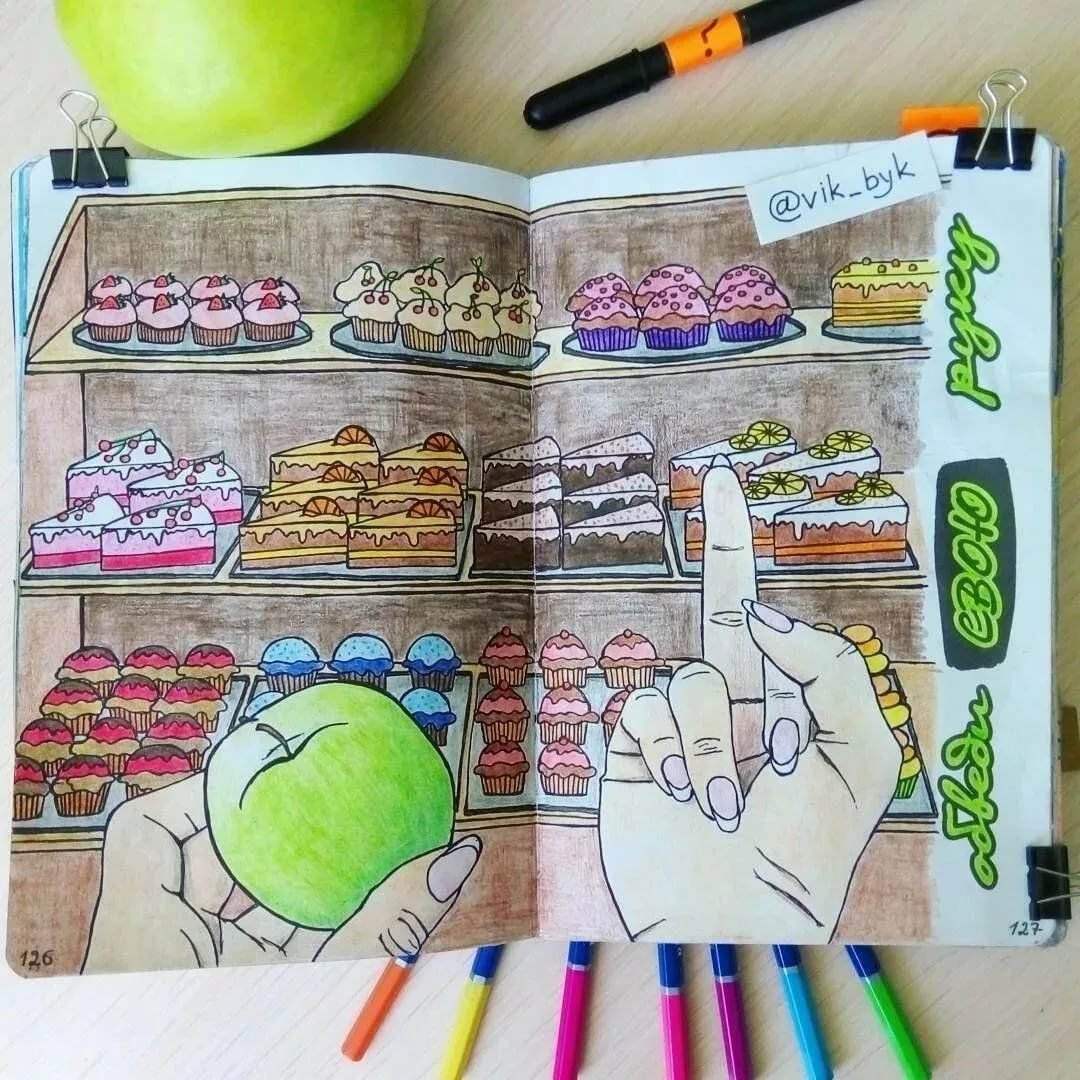 @vik_byk
обведи
свою
руку
126
127